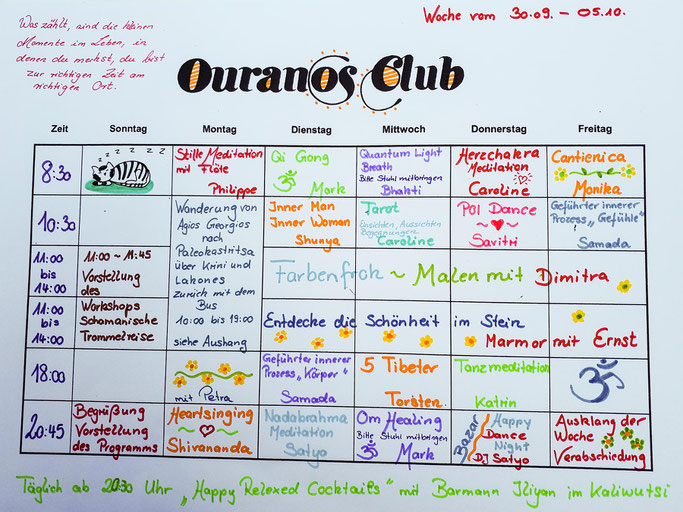 Was zählt, sind die kleinen
Momente im Leben, in
denen du merkst, du bist
zur richtigen Zeit am
richtigen Ort.
Woche vom 30.09. – 05.10.
Ouranos Club
Zeit Sonntag Montag Dienstag Mittwoch Donnerstag Freitag
8:30
z z z z z z
Stille Meditation
mit Flöte
Philippe
Qi Gong
ॐ Mark
Quantum Light
Breath
Bitte Stuhl mitbringen
Bhakti
Herzchakra
Meditation
Caroline
Cantienica
Monika
10:30
Wanderung von
Agios Georgios
nach
Paleokastritsa
über Krini und
Lakones
zurück mit dem
Bus
10:00 bis 19:00
siehe Aushang
mit Petra
Inner Man
Inner Woman
Shunya
Tarot
Einsichten, Aussichten
Begegnungen
Caroline
POI Dance
~ ♥ ~
Savitri
Geführter innerer
Prozess „Gefühle“
Samada
11:00
bis
14:00
11:00 ~ 11:45
Vorstellung
des
Workshops
Schamanische
Trommelreise
Farbenfroh ~ Malen mit Dimitra
11:00
bis
14:00
Entdecke die Schönheit im Stein
Marmor mit Ernst
18:00
Geführter innerer
Prozess „Körper“
Samada
5 Tibeter
Torsten
Tanzmeditation
Katrin
ॐ
20:45
Begrüßung
Vorstellung
des Programms
Heartsinging
~ ♡ ~
Shivananda
Nadabrahma
Meditation
Satyo
Om Healing
Bitte Stuhl mitbringen
ॐ Mark
Bazar
Happy
Dance
Night
DJ Satyo
Ausklang der
Woche
Verabschiedung
Täglich ab 20:30 Uhr „Happy Relexed Cocktails“ mit Barmann Iliyan im Kaliwutsi